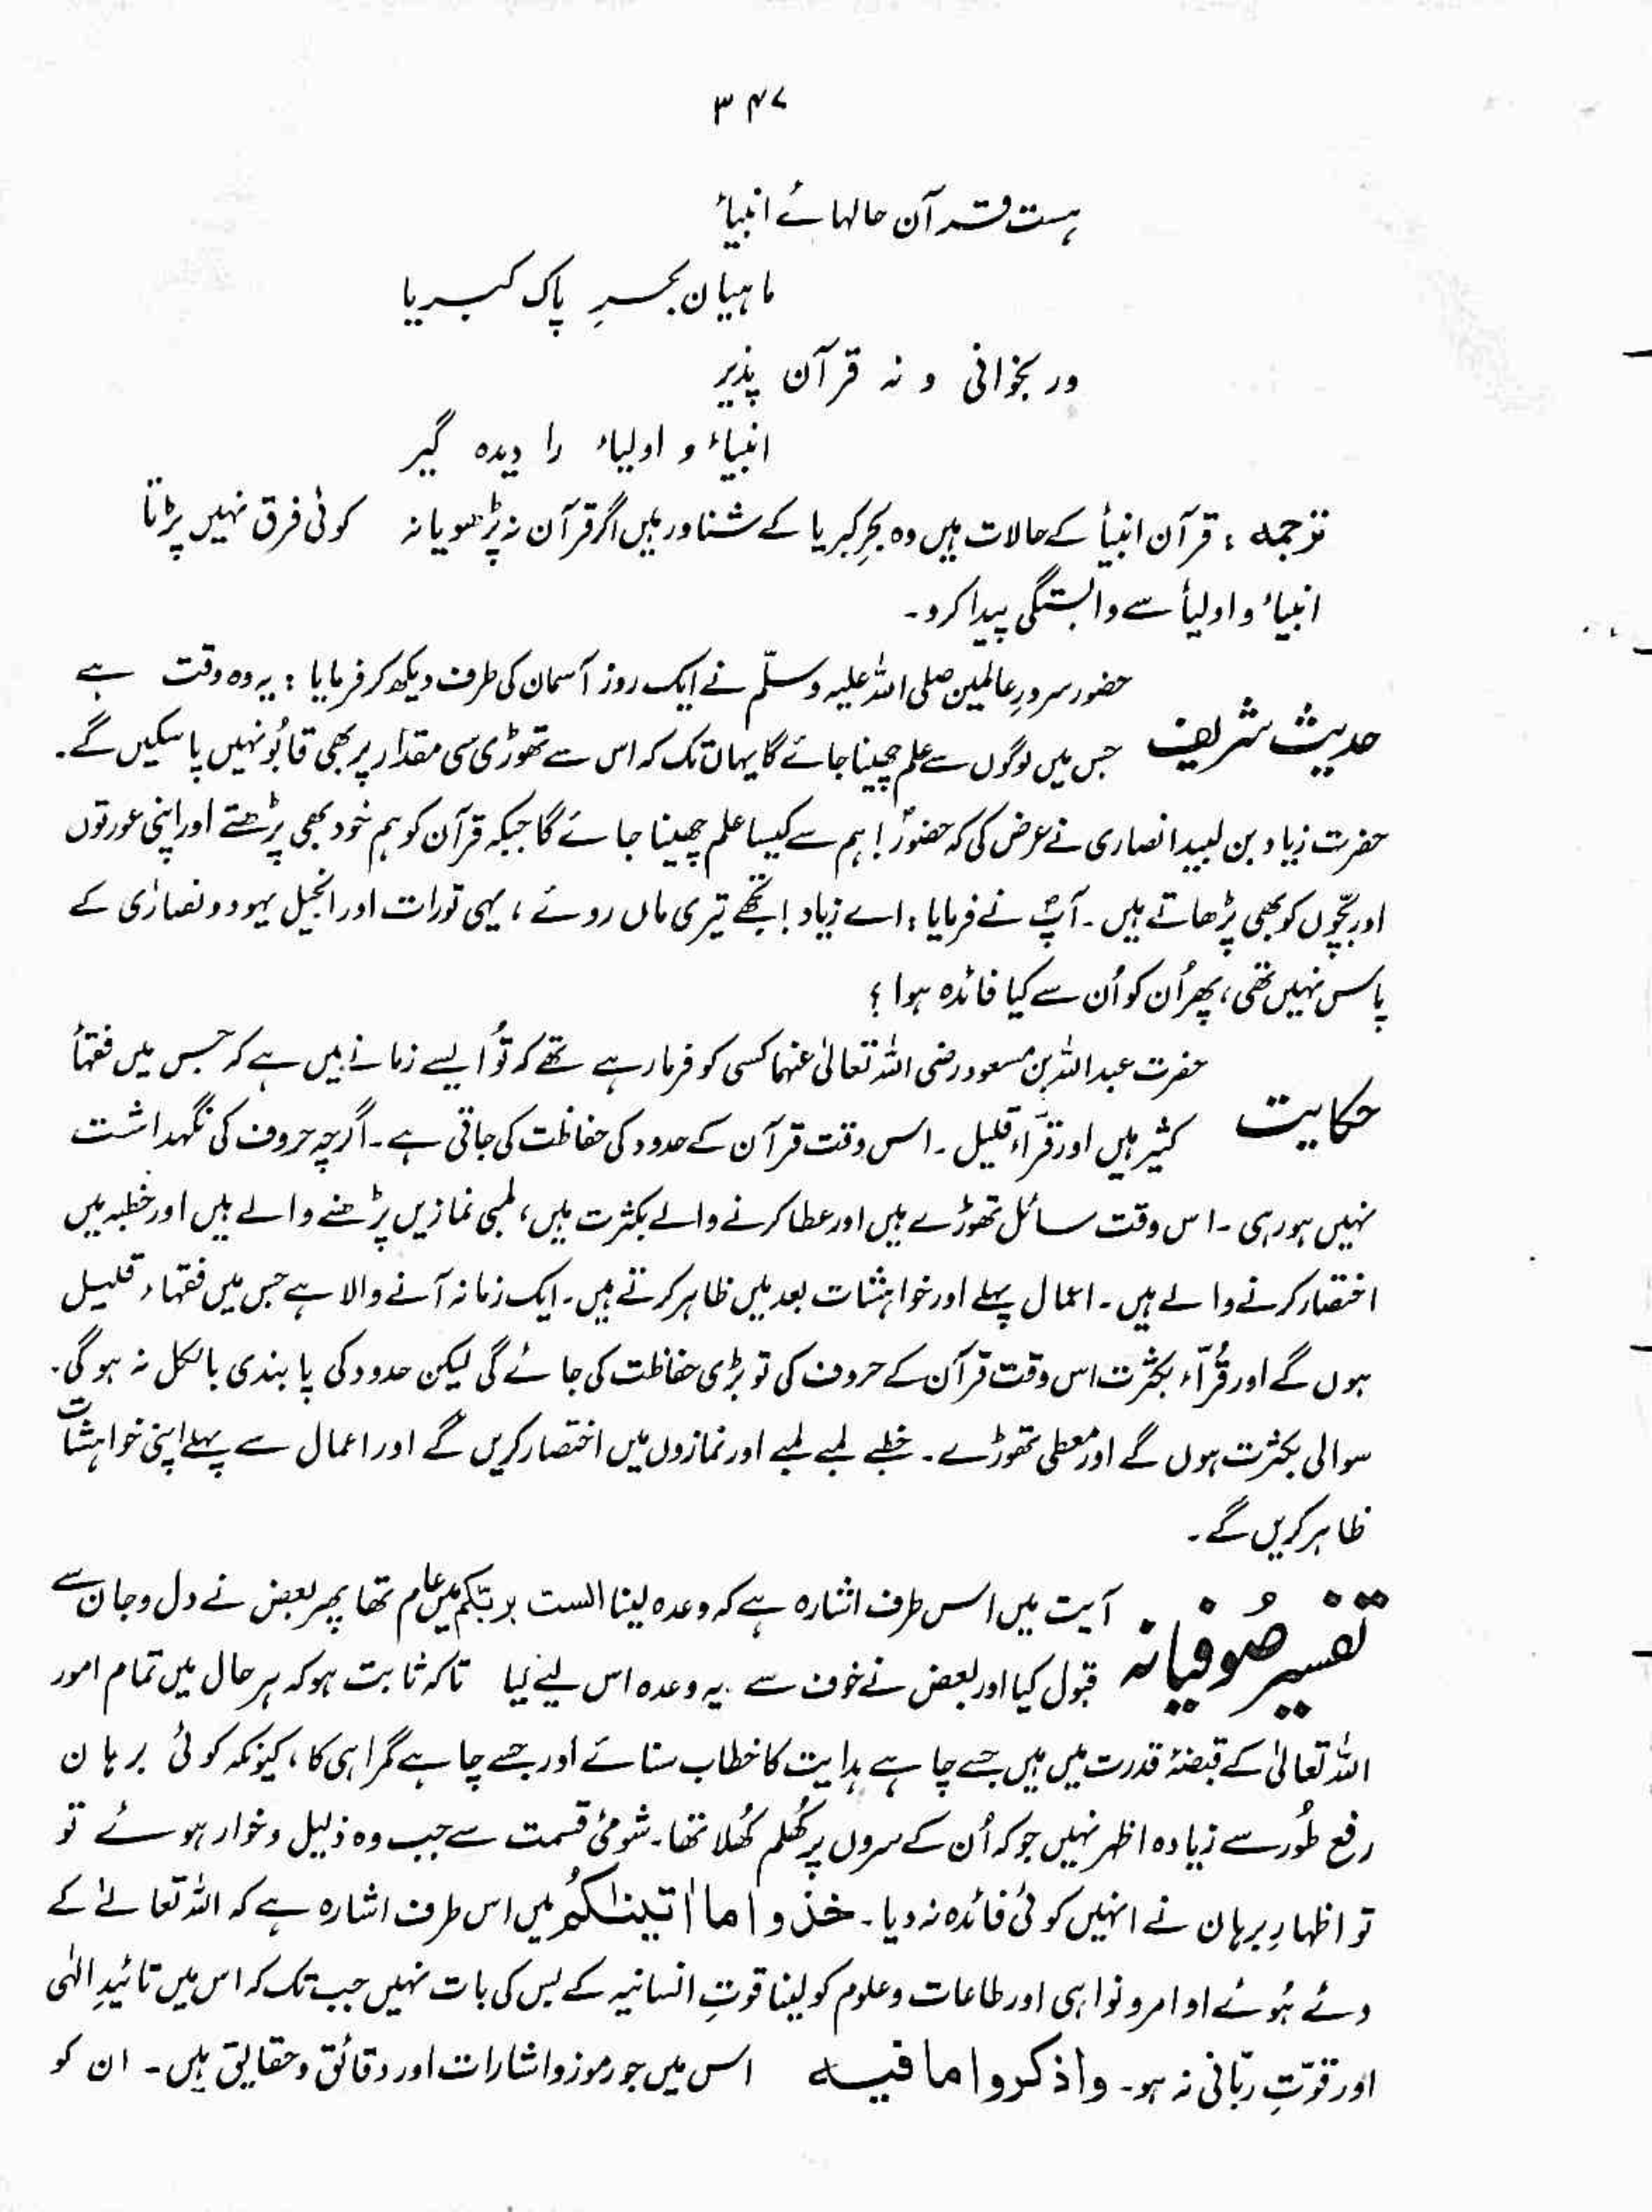 ۳۴۷
ہست قرآن حالہائے انبیاءٗ
ماہیان بحرِ پاک کبریا
ور بخوانی و نہ قرآن پذیر
انبیاءٗ و اولیاء را دیدہ گیر
ترجمہ : قرآن انبیأ کے حالات ہیں وہ بحرِ کبریا کے شناور ہیں اگر قرآن نہ پڑھو یا نہ کوئی فرق نہیں پڑتا
انبیاءٗ و اولیأ سے وابستگی پیدا کرو۔
حضور سرورِ عالمین صلی اللہ علیہ وسلّم نے ایک روز آسمان کی طرف دیکھ کر فرمایا : یہ وہ وقت ہے
حدیث شریف جس میں لوگوں سے علم چھینا جائے گا یہاں تک کہ اس سے تھوڑی سی مقدار پر بھی قابُو نہیں پا سکیں گے۔
حضرت زیاد بن لبید انصاری نے عرض کی کہ حضورؐ! ہم سے کیسا علم چھینا جائے گا جبکہ قرآن کو ہم خود بھی پڑھتے اور اپنی عورتوں
اور بچّوں کو بھی پڑھاتے ہیں۔ آپؐ نے فرمایا : اے زیاد! تجھے تیری ماں روئے، یہی تورات اور انجیل یہود و نصارٰی کے
پاس نہیں تھی، پھر اُن کو اُن سے کیا فائدہ ہوا ؟
حضرت عبداللہ بن مسعود رضی اللہ تعالیٰ عنہما کسی کو فرما رہے تھے کہ تُو ایسے زمانے میں ہے کہ جس میں فقہأ
حکایت کثیر ہیں اور قرّاء قلیل۔ اس وقت قرآن کے حدود کی حفاظت کی جاتی ہے۔ اگرچہ حروف کی نگہداشت
نہیں ہو رہی۔ اس وقت سائل تھوڑے ہیں اور عطا کرنے والے بکثرت ہیں، لمبی نمازیں پڑھنے والے ہیں اور خطبہ میں
اختصار کرنے والے ہیں۔ اعمال پہلے اور خواہشات بعد میں ظاہر کرتے ہیں۔ ایک زمانہ آنے والا ہے جس میں فقہاء قلیل
ہوں گے اور قُرّاء بکثرت اس وقت قرآن کے حروف کی تو بڑی حفاظت کی جائے گی لیکن حدود کی پابندی بالکل نہ ہو گی۔
سوالی بکثرت ہوں گے اور معطی تھوڑے۔ خطبے لمبے لمبے اور نمازوں میں اختصار کریں گے اور اعمال سے پہلے اپنی خواہشات
ظاہر کریں گے۔
آیت میں اس طرف اشارہ ہے کہ وعدہ لینا الست بربّکم میں عام تھا پھر بعض نے دل و جان سے
تفسیر صُوفیانہ قبول کیا اور بعض نے خوف سے یہ وعدہ اس لیے لیا تاکہ ثابت ہو کہ ہر حال میں تمام امور
اللہ تعالیٰ کے قبضۂ قدرت میں ہیں جسے چاہے ہدایت کا خطاب سنائے اور جسے چاہے گمراہی کا، کیونکہ کوئی برہان
رفع طُور سے زیادہ اظہر نہیں جو کہ اُن کے سروں پر کُھلم کُھلا تھا۔ شومیٔ قسمت سے جب وہ ذلیل و خوار ہوئے تو
تو اظہارِ برہان نے انہیں کوئی فائدہ نہ دیا۔ خذوا ما اٰتینٰکُم میں اس طرف اشارہ ہے کہ اللہ تعالےٰ کے
دئے ہُوئے اوامر و نواہی اور طاعات و علوم کو لینا قوتِ انسانیہ کے بس کی بات نہیں جب تک کہ اس میں تائیدِ الٰہی
اور قوّتِ ربّانی نہ ہو۔ واذکروا ما فیہ اس میں جو رموز و اشارات اور دقائق و حقایق ہیں۔ ان کو